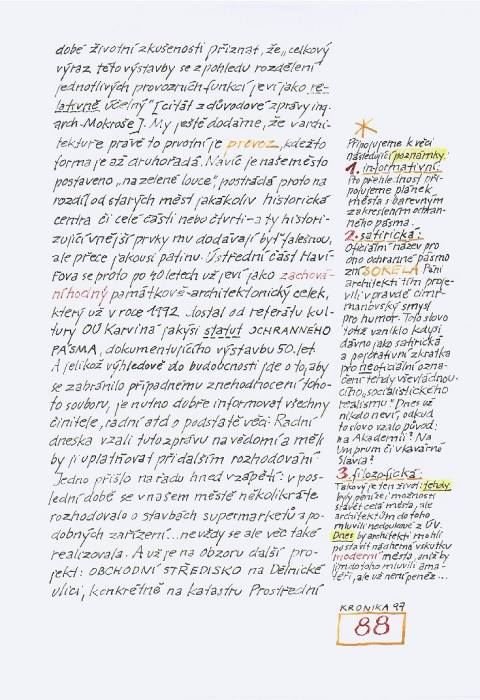 době životní zkušenosti přiznat, že „celkový
výraz této výstavby se z pohledu rozdělení
jednotlivých provozních funkcí jeví jako re-
lativně účelný" [citát z důvodové zprávy ing.
arch. Mokroše]. My ještě dodáme, že v archi-
tektuře právě to prvotní je provoz, kdežto
forma je až druhořadá. Navíc je naše město
postaveno „na zelené louce", postrádá proto na
rozdíl od starých měst jakákoliv historická
centra či celé části nebo čtvrti - a ty histori-
zující vnější prvky mu dodávají byť falešnou,
ale přece jakousi patinu. Ústřední část Haví-
řova se proto po 40 letech už jeví jako zachová-
níhodný památkově-architektonický celek,
který už v roce 1992 dostal od referátu kul-
tury OÚ Karviná jakýsi statut OCHRANNÉHO
PÁSMA, dokumentujícího výstavbu 50. let.
A jelikož výhledově do budoucnosti jde o to, aby
se zabránilo případnému znehodnocení toho-
to souboru, je nutno dobře informovat všechny
činitele, radní atd o podstatě věci. Radní
dneska vzali tuto zprávu na vědomí a měli
by ji uplatňovat při dalším rozhodování.
Jedno přišlo na řadu hned vzápětí: v pos-
lední době se v našem městě několikráte
rozhodovalo o stavbách supermarketů a po-
dobných zařízení... ne vždy se ale věc také
realizovala. A už je na obzoru další pro-
jekt: OBCHODNÍ STŘEDISKO na Dělnické
ulici, konkrétně na katastru Prostřední
Připojujeme k věci
následující poznámky:
1. informativní:
Pro přehlednost při-
pojujeme plánek
města s barevným
zakreslením ochran-
ného pásma.
2. satirická:
Oficiální název pro
ono ochranné pásmo
zní SORELA. Páni
architekti tím proje-
vili vpravdě cimr-
manovský smysl
pro humor. Toto slovo
totiž vzniklo kdysi
dávno jako satirická
a pejorativní zkratka
pro neoficiální ozna-
čení tehdy vševládnou-
cího „socialistického
realismu". Dnes už
nikdo neví, odkud
to slovo vzalo původ:
na Akademii? Na
Umprum či v kavárně
Slavia?
3. filozofická:
Takový je ten život: tehdy
byly peníze i možnosti
stavět celá města, ale
architektům do toho
mluvili nedoukové z ÚV.
Dnes by architekti mohli
postavit nádherná vskutku
moderní města, aniž by
jim do toho mluvili ama-
téři, ale už není peněz...
KRONIKA 97
88